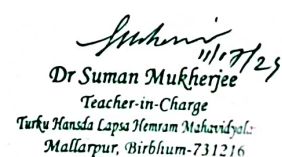 Dr Suman Mukherjee
Teacher-in-Charge
Turku Hansda Lapsa Hemram Mahavidyala
Mallarpur, Birbhum-731216